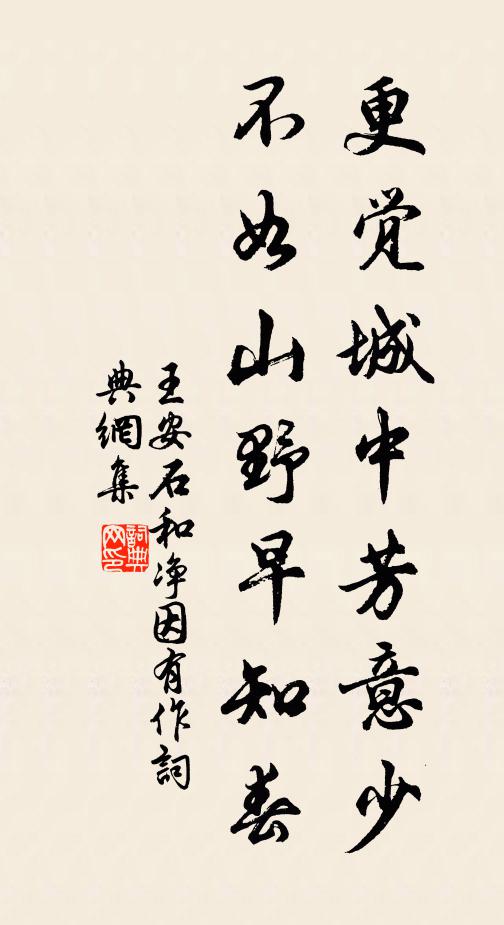 更覚城中芳意少
不如山野早知春
王安石和净因有作詞
典網集
詞典
网印